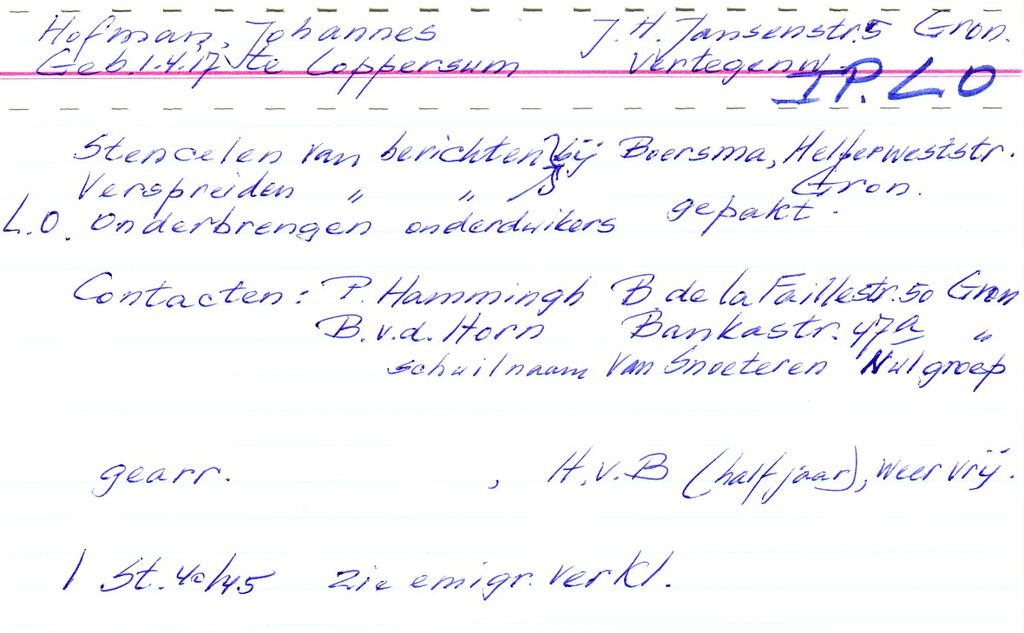 Hofman, Johannes J.H. Jansenstr. 5 Gron.
Geb. 1.4.17 te Loppersum Vertegenw.
I P. L O
Stencelen van berichten } bij Boersma, Helperweststr.
Verspreiden " " } Gron.
L.O. Onderbrengen onderduikers gepakt.
Contacten: P. Hammingh B de la Faillestr. 50 Gron
B. v. d. Horn Bankastr. 47a "
schuilnaam van Snoeteren Nulgroep
gearr. , H.v.B (half jaar), weer vrij.
1 St. 40/45 zie emigr. verkl.